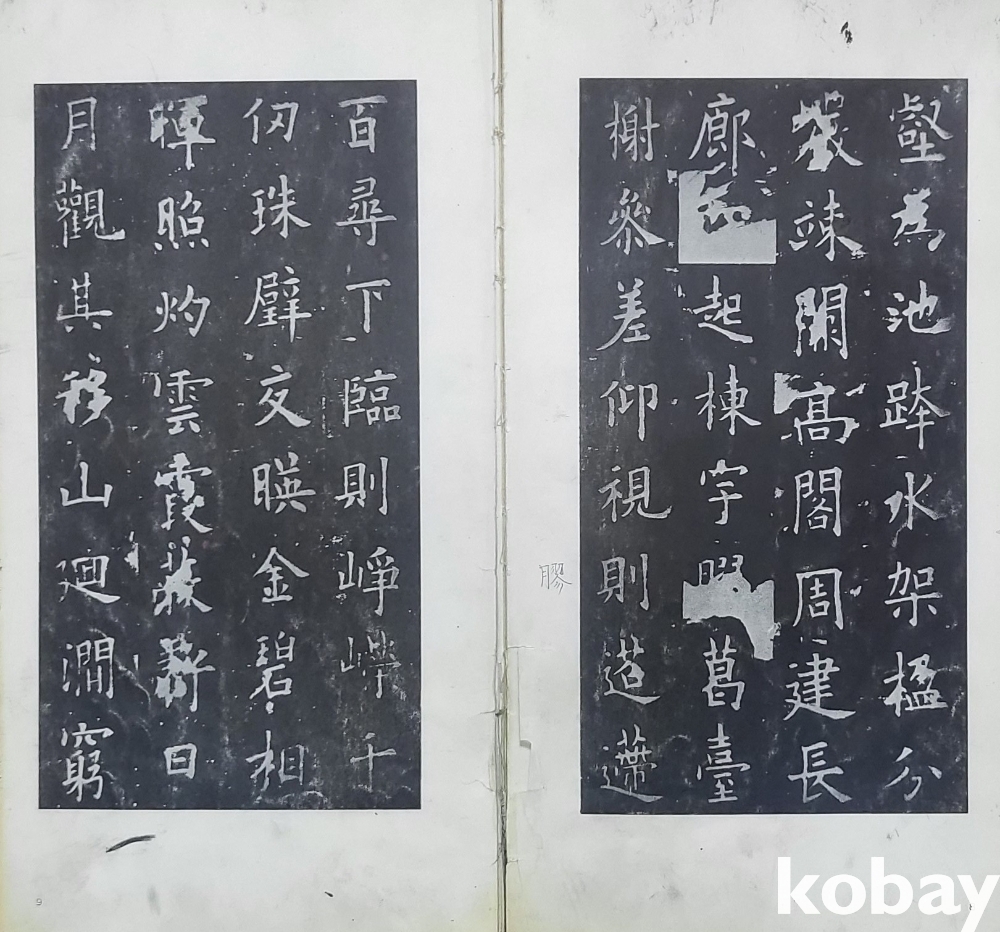 壑為池跨水架楹分
巖竦闕高閣周建長
廊四起棟宇膠葛臺
榭參差仰視則迢遰
膠
百尋下臨則崢嶸千
仞珠璧交暎金碧相
暉照灼雲霞蔽虧日
月觀其移山廻澗窮
9
kobay